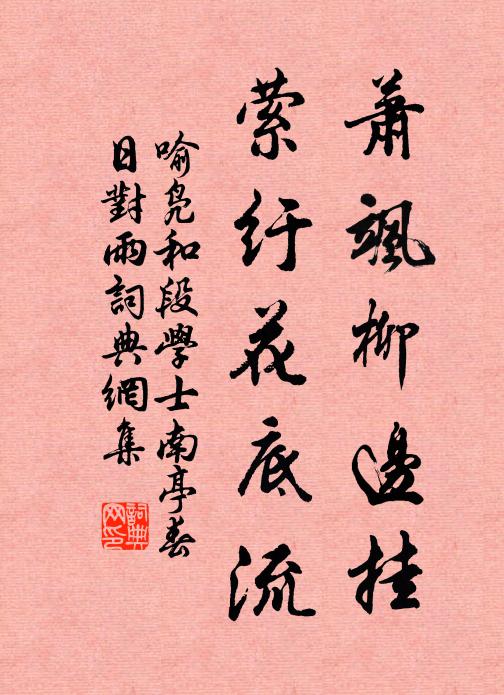 蕭颯柳邊挂
縈紆花底流
喻鳧和段學士南亭春
日對雨詞典網集
詞典网印